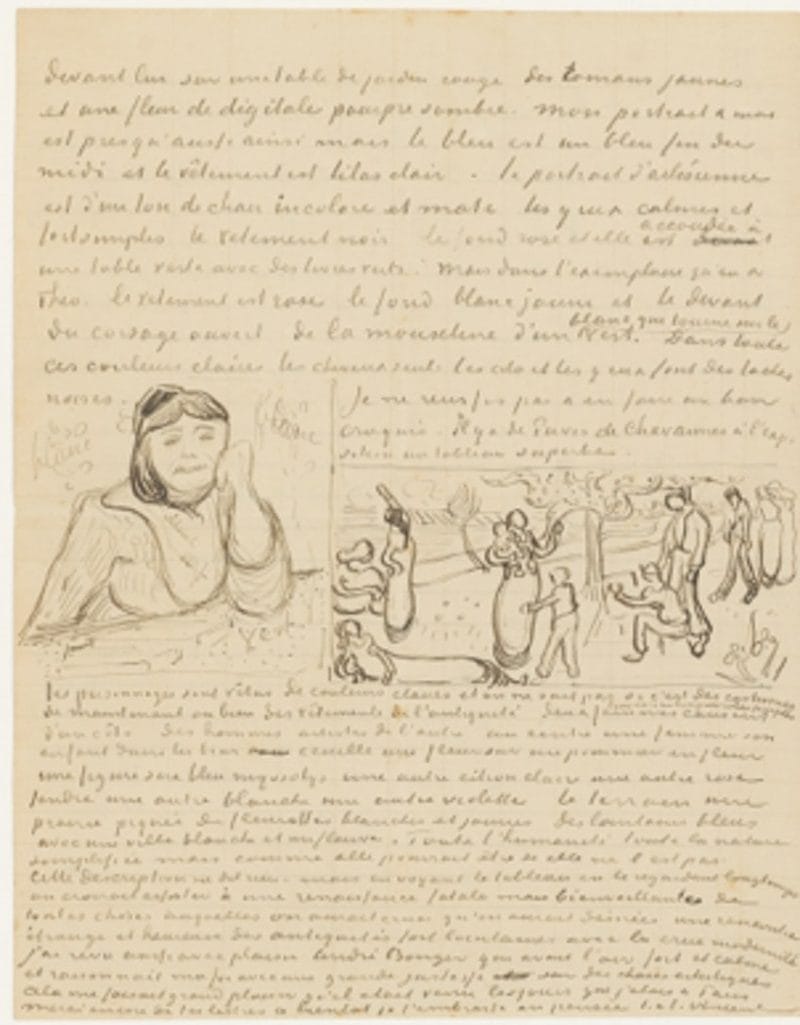 devant lui sur une table de jardin rouge des romans jaunes
et une fleur de digitale pourpre sombre. Mon portrait à moi
est presqu'aussi ainsi mais le bleu est un bleu fin du
midi et le vêtement est lilas clair. le portrait d'arlésienne
est d'un ton de chair incolore et mate les yeux calmes et
fort simples le vetement noir le fond rose et elle est accoudée à
une table verte avec des livres verts. Mais dans l'exemplaire qu'en a
Theo. le vetement est rose le fond blanc jaune et le devant
du corsage ouvert de la mousseline d'un blanc qui tourne sur le
vert. Dans toutes
ces couleurs claires les cheveux seuls les cils et les yeux font des taches
noires.
blanc
Je ne reussis pas à en faire un bon
croquis. Il y a de Puvis de Chavannes à l'exp.
un tableau superbe.
vert
les personnages sont vêtus de couleurs claires et on ne sait pas si c'est des costumes
de maintenant ou bien des vêtements de l'antiquité deux femmes causent
d'un côté des hommes artistes de l'autre au centre une femme son
enfant dans les bras cueille une fleur sur un pommier en fleur
une figure sera bleu myosotys une autre citron clair une autre rose
tendre une autre blanche une autre violette le terrain une
prairie piquée de fleurettes blanches et jaunes des lointains bleus
avec une ville blanche et un fleuve. Toute l'humanité toute la nature
simplifiée mais comme elle pourrait être si elle ne l'est pas
Cette description ne dit rien. mais en voyant le tableau en le regardant longtemps
on croirait assister à une renaissance fatale mais bienveillante de
toutes choses auxquelles on aurait cru qu'on aurait désirées une rencontre
étrange et heureuse des antiquités fort lointaines avec la crue modernité
j'ai revu aussi avec plaisir André Bonger qui avait l'air fort et calme
et raisonnait ma foi avec une grande justesse sur des choses artistiques
Cela me faisait grand plaisir qu'il était venu les jours que j'étais à Paris
merci encore de tes lettres à bientôt je t'embrasse en pensée t. à t. Vincent